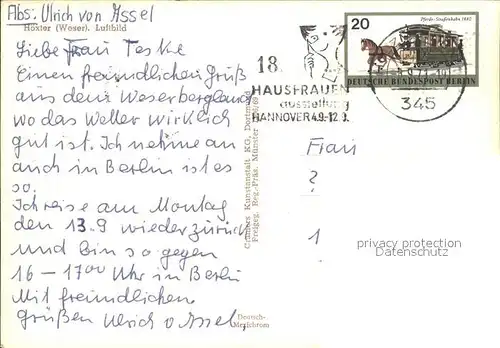 Abs. Ulrich von Assel
Höxter (Weser). Luftbild
Liebe Frau Teske
Einen freundlichen Gruß
aus dem Weserbergland
wo das Wetter wirklich
gut ist. Ich nehme an
auch in Berlin ist es
so.
Ich reise am Montag
den 13.9 wieder zurück
und bin so gegen
16 - 1700 Uhr in Berlin
Mit freundlichen
Grüßen Ulrich v Assel,
Deutsch-
Mexichrom
Cramers Kunstanstalt KG, Dortmund
Freigeg. Reg.-Präs. Münster
18.
HAUSFRAUEN
ausstellung
HANNOVER 4.9.-12.9.
20
Pferde-Straßenbahn
DEUTSCHE BUNDESPOST BERLIN
345
Frau
?
1
privacy protection
Datenschutz